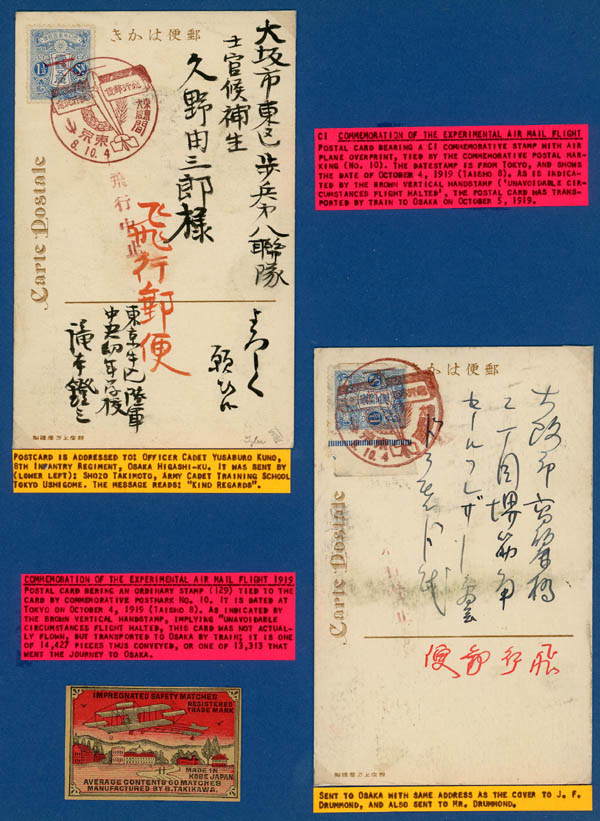 郵便はかき
飛行郵便
東京
8.10.4
大阪市東区歩兵第八聯隊
士官候補生
久野由三郎様
飛行郵便
よろしく
東京牛込陸軍
中央幼年学校
Carte Postale
C1 COMMEMORATION OF THE EXPERIMENTAL AIR MAIL FLIGHT
POSTAL CARD BEARING A C1 COMMEMORATIVE STAMP WITH AIR
PLANE OVERPRINT, TIED BY THE COMMEMORATIVE POSTAL MAR-
KING (NO. 10). THE DATESTAMP IS FROM TOKYO, AND SHOWS
THE DATE OF OCTOBER 4, 1919 (TAISHO 8). AS IS INDIC-
ATED BY THE BROWN VERTICAL HANDSTAMP ('UNAVOIDABLE CIR-
CUMSTANCES FLIGHT HALTED', THE POSTAL CARD WAS TRANS-
PORTED BY TRAIN TO OSAKA ON OCTOBER 5, 1919.
POSTCARD IS ADDRESSED TO: OFFICER CADET YUSABURO KUNO,
8TH INFANTRY REGIMENT, OSAKA HIGASHI-KU. IT WAS SENT BY
(LOWER LEFT): SHOZO TAKIMOTO, ARMY CADET TRAINING SCHOOL
TOKYO USHIGOME. THE MESSAGE READS: "KIND REGARDS".
郵便はかき
10.4
大阪市高麗橋
二丁目堺筋角
セールフレザー商会
ドラモンド氏
飛行郵便
Carte Postale
COMMEMORATION OF THE EXPERIMENTAL AIR MAIL FLIGHT 1919
POSTAL CARD BERING AN ORDINARY STAMP (129) TIED TO THE
CARD BY COMMEMORATIVE POSTMARK NO. 10. IT IS DATED AT
TOKYO ON OCTOBER 4, 1919 (TAISHO 8). AS INDICATED BY
THE BROWN VERTICAL HANDSTAMP, IMPLYING "UNAVOIDABLE
CIRCUMSTANCES FLIGHT HALTED, THIS CARD WAS NOT ACTU-
ALLY FLOWN, BUT TRANSPORTED TO OSAKA BY TRAIN; IT IS ONE
OF 14,427 PIECES THUS CONVEYED, OR ONE OF 13,313 THAT
WENT THE JOURNEY TO OSAKA.
IMPREGNATED SAFETY MATCHES
REGISTERED
TRADE MARK
MADE IN
KOBE JAPAN
AVERAGE CONTENTS 60 MATCHES
MANUFACTURED BY B.TAKIKAWA.
SENT TO OSAKA WITH SAME ADDRESS AS THE COVER TO J. F.
DRUMMOND, AND ALSO SENT TO MR. DRUMMOND.